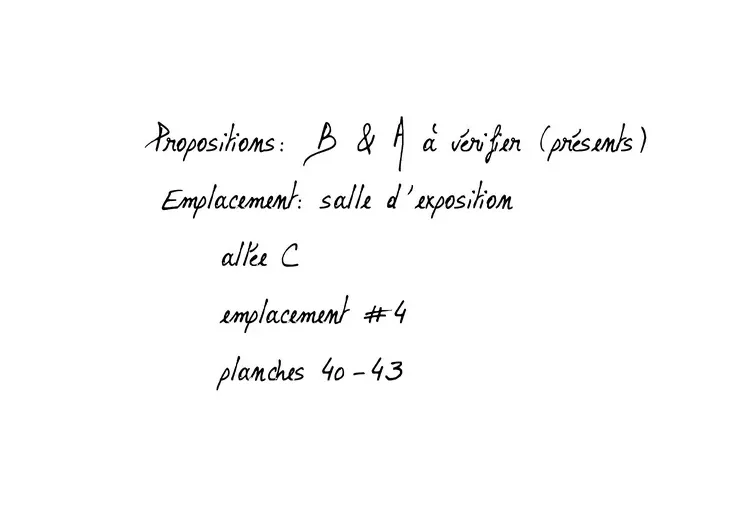 Propositions: B & A à vérifier (présents)
Emplacement: salle d'exposition
allée C
emplacement #4
planches 40-43